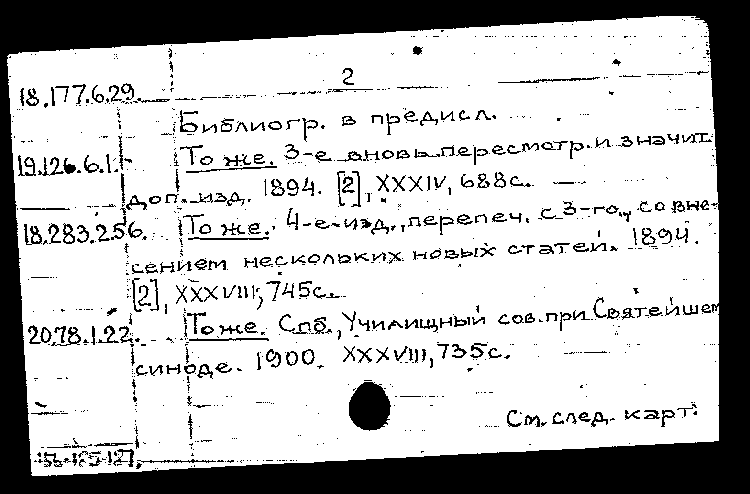 2
18.177.6.29.
Библиогр. в предисл.
19.126.6.1. То же. 3-е вновь пересмотр. и значит.
доп. изд. 1894. [2], XXXIV, 688с.
18.283.2.56. То же. 4-е изд., перепеч. с 3-го, со вне-
сением нескольких новых статей. 1894.
[2], XXXVIII, 745с.
20.78.1.22. То же. Спб., Училищный сов. при Святейшем
синоде. 1900. XXXVIII, 735с.
См. след. карт.